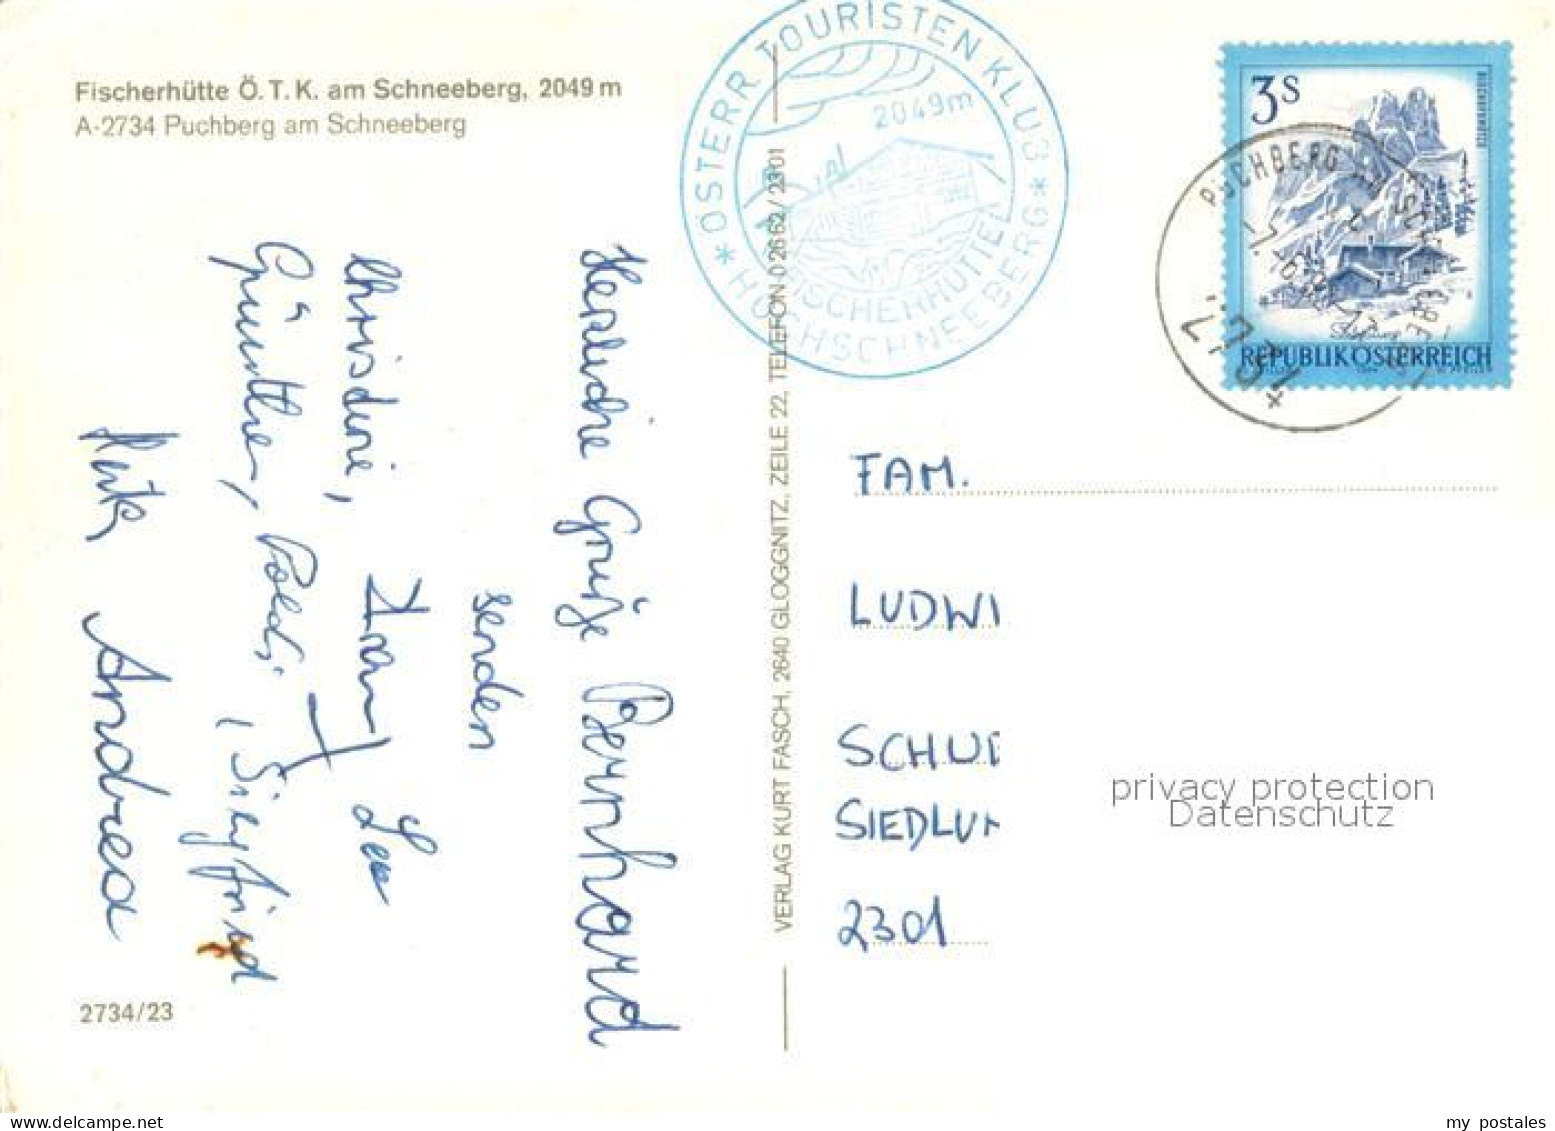 Fischerhütte Ö. T. K. am Schneeberg, 2049 m
A-2734 Puchberg am Schneeberg
* ÖSTERR. TOURISTENKLUB *
HOCHSCHNEEBERG
2049m
FISCHERHÜTTE
3S
BISCHOFSMÜTZE
Salzburg
REPUBLIK ÖSTERREICH
PUCHBERG AM SCHNEEBERG
2734
Herzliche Grüße Bernhard
senden
Christine,
Franz Leo
Günther, Poldi, Siegfried
Andrea
VERLAG KURT FASCH, 2640 GLOGGNITZ, ZEILE 22, TELEFON 0 26 62 / 23 01
FAM.
LUDWI
SIEDLUN
2301
privacy protection
Datenschutz
2734/23
my postales